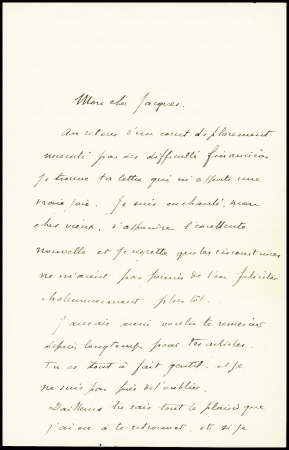 Mon cher Jacques.
Au retour d'un court déplacement
necessité par des difficultés financières
je trouve ta lettre qui m'apporte une
vraie joie. Je suis enchanté, mon
cher vieux, d'apprendre l'excellente
nouvelle et je regrette que les circonstances
ne m'aient pas permis de t'en féliciter
chaleureusement plus tôt.
J'aurais aussi voulu te remercier
depuis longtemps pour tes articles.
Tu es tout à fait gentil et je
ne suis pas près de l'oublier.
D'ailleurs tu sais tout le plaisir que
j'ai eu à te retrouver, et si je